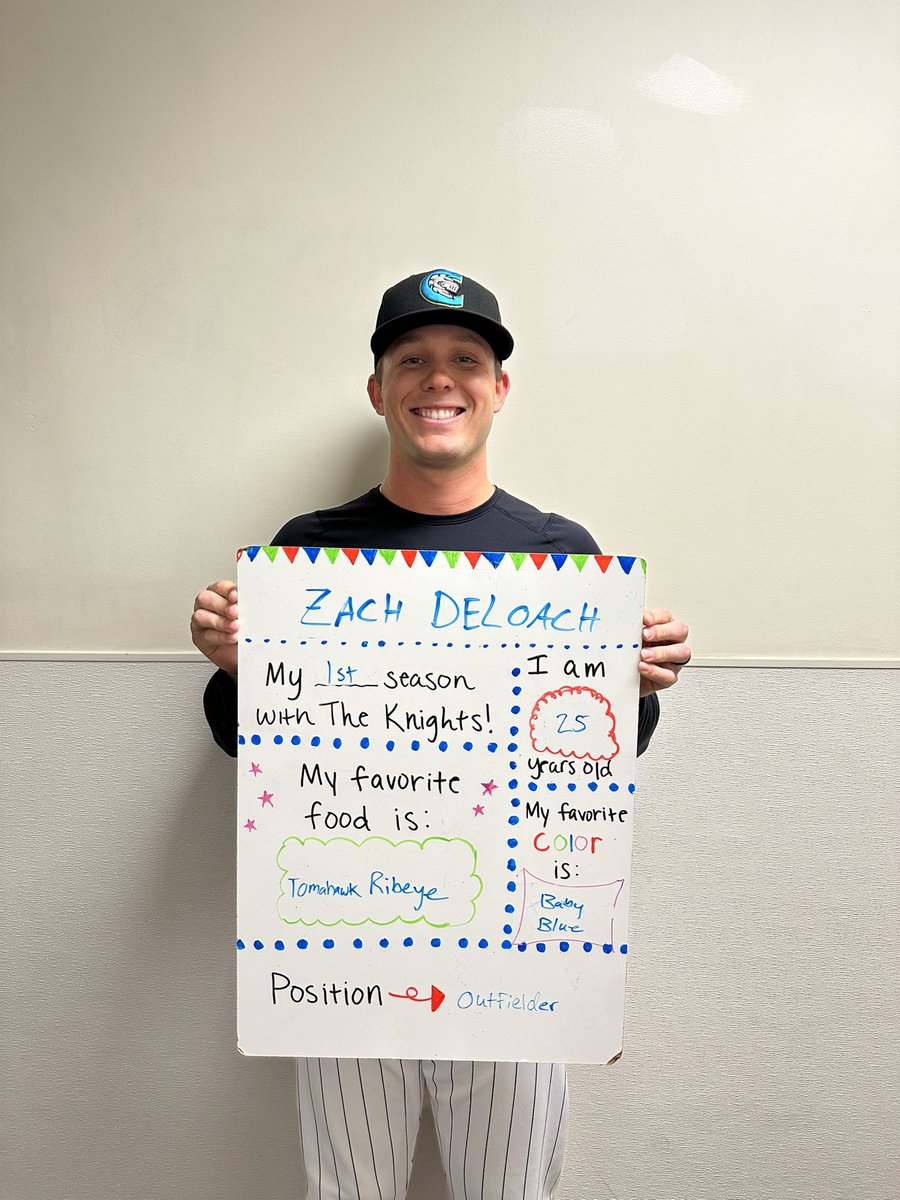 ZACH DELOACH
My 1st season
with The Knights!
I am
25
years old
My favorite
food is:
Tomahawk Ribeye
My favorite
color
is:
Baby
Blue
Position
Outfielder
C